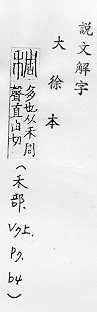 說文解字
大徐本
稠多也从禾周
聲直由切
(禾部.V7上.P7.b4)